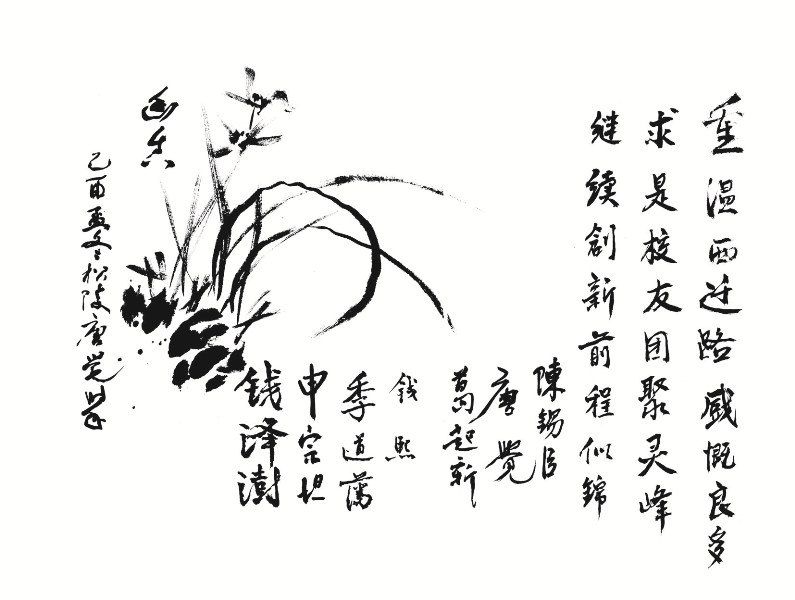 重温西迁路感慨良多
求是校友团聚灵峰
继续创新前程似錦
陳錫臣
唐覺
葛起新
钱熙
季道藩
申宗坦
钱泽澍
幽香
己酉孟冬松陵唐觉